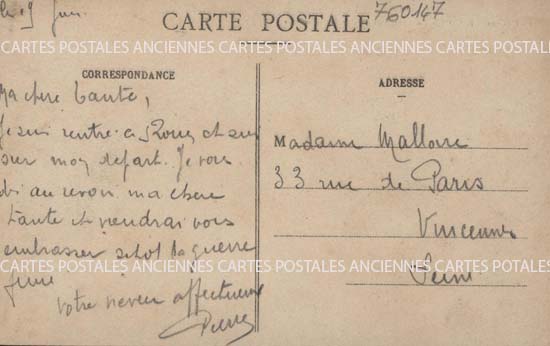 le 9 juin
CARTE POSTALE
760147
CARTES POSTALES ANCIENNES CARTES POSTALES ANCIENNES CARTES POSTALES ANCIENNES
CORRESPONDANCE
Ma chère tante,
Je suis rentré à Rouen et suis
sur mon départ. Je vous
dis au revoir ma chère
tante et viendrai vous
embrasser sitôt la guerre
finie
Votre neveu affectueux
Pierre
ADRESSE
Madame Malloire
33 rue de Paris
Vincennes
Seine
CARTES POSTALES ANCIENNES CARTES POSTALES ANCIENNES CARTES POSTALES ANCIENNES